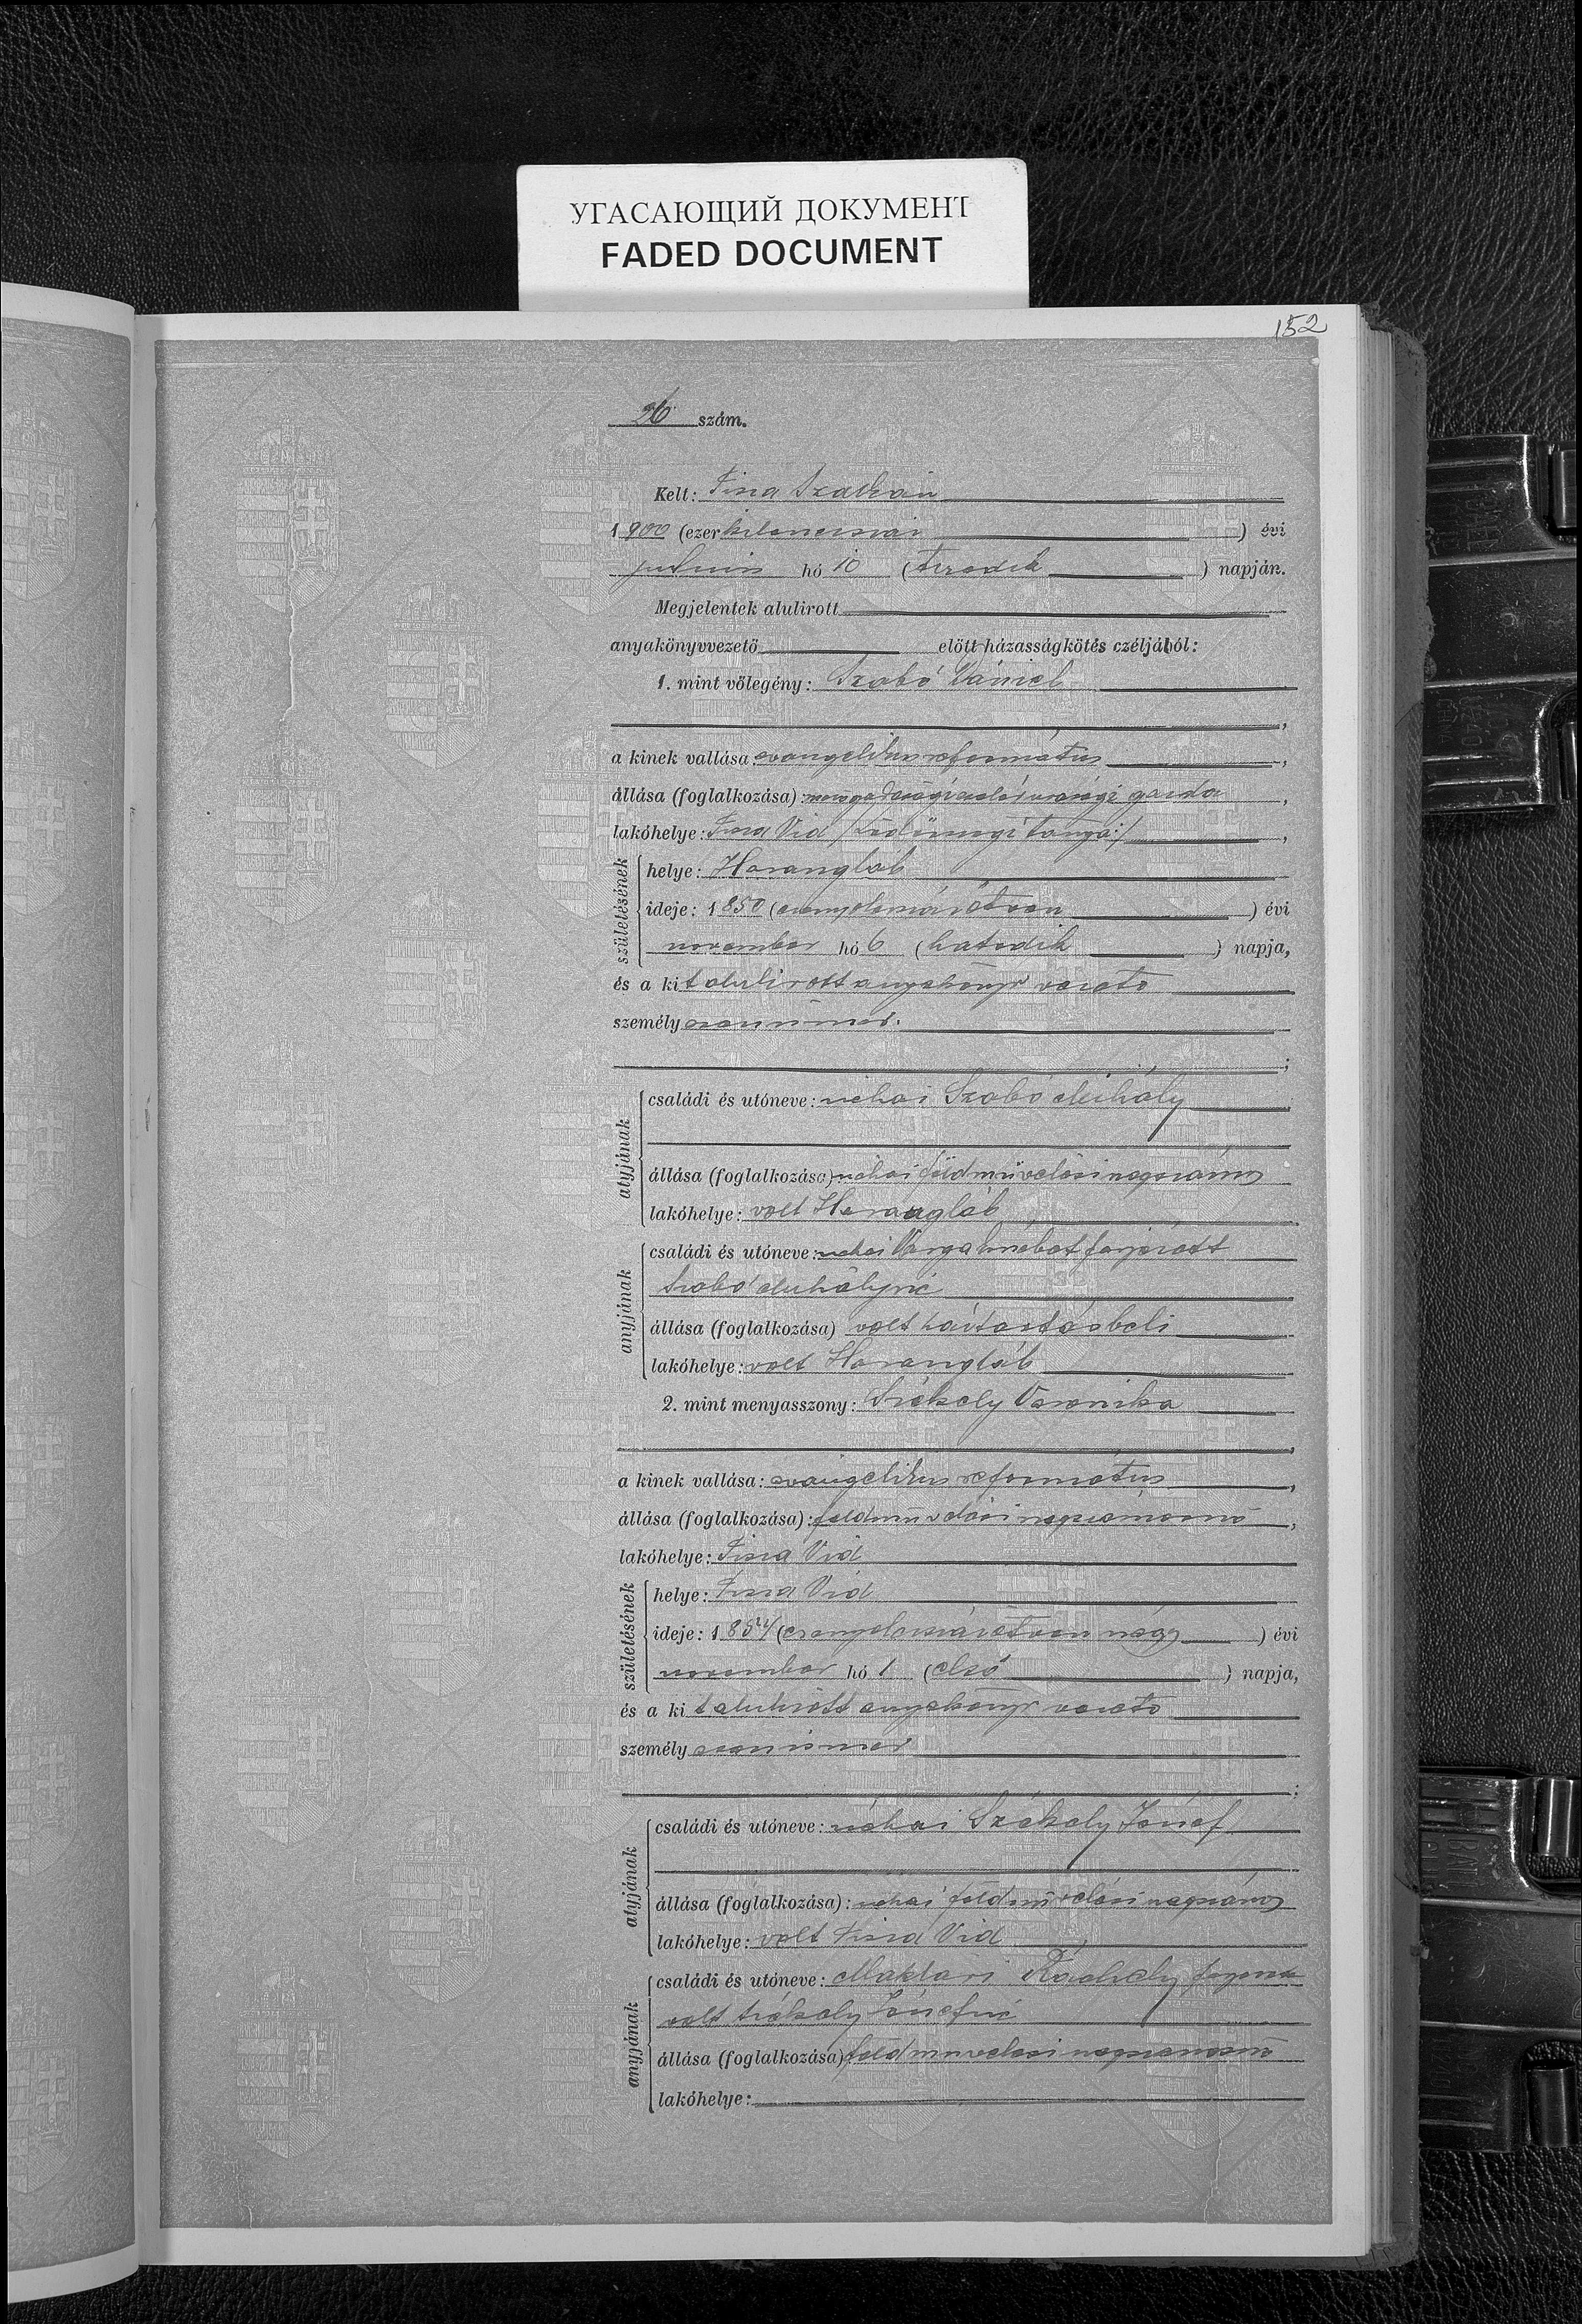 УГАСАЮЩИЙ ДОКУМЕНТ
FADED DOCUMENT
152
26 szám.
Kelt: Tisza Szalván
1900 (ezerkilenczszáz) évi
hó 10 (tizedik) napján.
Megjelentek alulirott
anyakönyvvezető előtt házasságkötés czéljából:
1. mint vőlegény: Szabó Dániel
,
a kinek vallása: evangelikus református,
állása (foglalkozása): urasági gazda,
lakóhelye: Tisza Vid tanya,
születésének
helye: Harangláb
ideje: 1850 (nyolczszázötven) évi
november hó 6 (hatodik) napja,
és a kit alulirott anyakönyvvezető
személyesen ismer.
;
atyjának
családi és utóneve: néhai Szabó Mihály
állása (foglalkozása): néhai földmüvelési napszámos
lakóhelye: volt Harangláb
anyjának
családi és utóneve: néhai Varga
Szabó Mihályné
állása (foglalkozása) volt háztartásbeli
lakóhelye: volt Harangláb
2. mint menyasszony: Székely Veronika
,
a kinek vallása: evangelikus református,
állása (foglalkozása): földmüvelési napszámosnő,
lakóhelye: Tisza Vid
születésének
helye: Tisza Vid
ideje: 1854 (ezernyolczszázötven négy) évi
november hó 1 (első) napja,
és a kit alulirott anyakönyvvezető
személyesen ismer
;
atyjának
családi és utóneve: néhai Székely József
állása (foglalkozása): néhai földmüvelési napszámos
lakóhelye: volt Tisza Vid
anyjának
családi és utóneve: Maklári Ráchely
volt Székely Józsefné
állása (foglalkozása) földmüvelesi napszamosnő
lakóhelye: